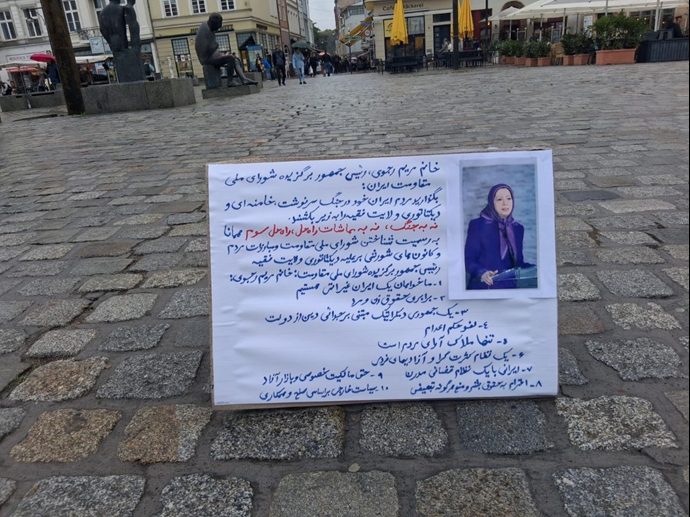 خانم مریم رجوی، رئیس جمهور برگزیده شورای ملی
مقاومت ایران:
بگذارید مردم ایران خود در جنگ سرنوشت، خامنه ای و
دیکتاتوری ولایت فقیه را به زیر بکشند
نه به جنگ، نه به مماشات راه حل، راه حل سوم همانا
به رسمیت شناختن شورای ملی مقاومت و مبارزات مردم
و کانون های شورشی بر علیه دیکتاتوری ولایت فقیه
رئیس جمهور برگزیده شورای ملی مقاومت: خانم مریم رجوی:
۱- ما خواهان یک ایران غیر اتمی هستیم
۲- برابری حقوق زن و مرد
۳- یک جمهوری دمکراتیک مبتنی بر جدایی دین از دولت
۴- لغو حکم اعدام
۵- تنها ملاک آرای مردم است
۶- یک نظام کثرت گرا و آزادیهای فردی
۷- ایرانی با یک نظام قضائی مدرن
۸- احترام به حقوق بشر و منع هرگونه تبعیض
۹- حق مالکیت خصوصی و بازار آزاد
۱۰- سیاست خارجی بر اساس صلح و همکاری